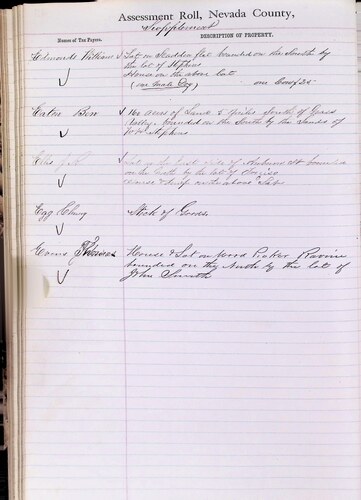 Assessment Roll, Nevada County,
Supplement
Names of Tax Payers.
DESCRIPTION OF PROPERTY.
Edwards William Lot on flat bounded on the South by
the lot of
House on the above lot
(one Male Dog) one Cow $25
Eaton Ben 160 acres of Land 2 Miles South of Grass
Valley bounded on the South by the Lands of
Lot on the East side of Auburn St bounded
on the by the lot of
House & on the above Lot
Egg Chung Stock of Goods
Evans House & Lot on Wood Pecker Ravine
bounded on the North by the lot of
John Smith